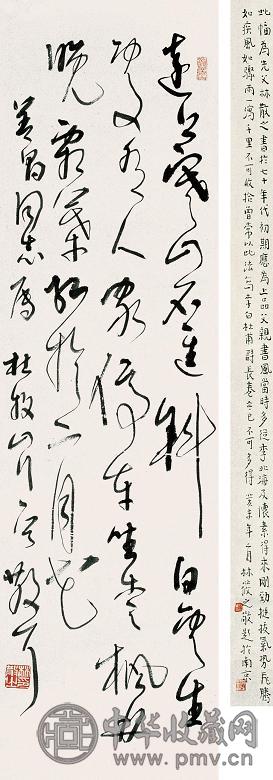 此幅為先父林散之書於七十年代初期應為上品父親書風當時多從李北海及懷素得來剛勁挺拔氣勢飛騰
如疾風如驟雨一瀉千里不可收拾曾常以此法寫李白杜甫詩長卷今已不可多得 癸未年二月林筱之敬題於南京
遠上寒山石徑斜 白雲生
處有人家停車坐愛楓林
晚霜葉紅於二月花
昌同志属 杜牧山行 散耳
中华收藏网
www.pmv.cn